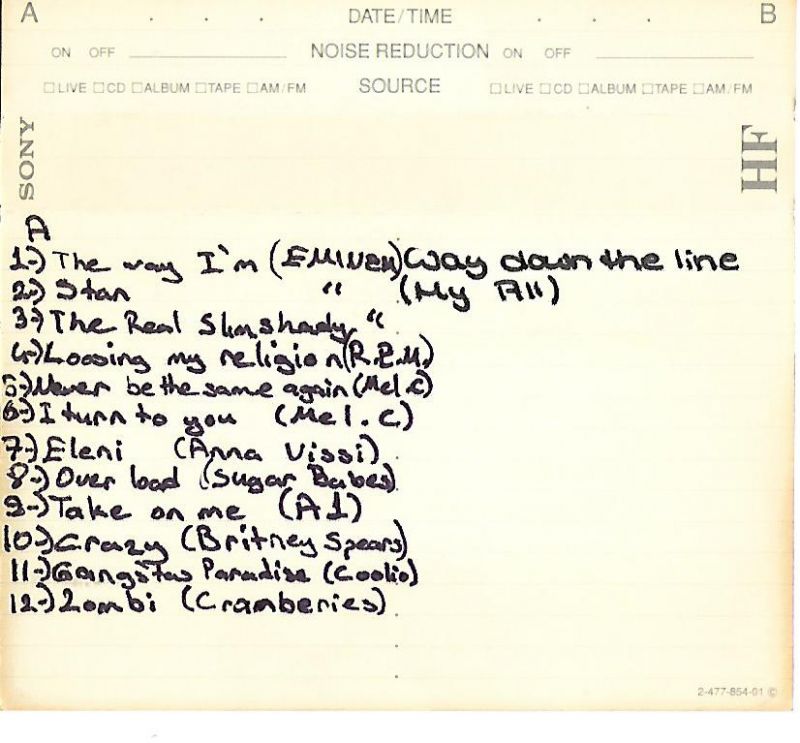 A DATE/TIME B
ON OFF NOISE REDUCTION ON OFF
□LIVE □CD □ALBUM □TAPE □AM/FM SOURCE □LIVE □CD □ALBUM □TAPE □AM/FM
SONY
HF
A
1-) The way I'm (EMINEM) Way down the line
2-) Stan " (My All)
3-) The Real Slimshady "
4-) Loosing my religion (R.E.M.)
5-) Never be the same again (Mel.C)
6-) I turn to you (Mel.C)
7-) Eleni (Anna Vissi)
8-) Over load (Sugar Babes)
9-) Take on me (A1)
10-) Crazy (Britney Spears)
11-) Gangstas Paradise (Coolio)
12-) Zombi (Cramberies)
2-477-854-01 ©